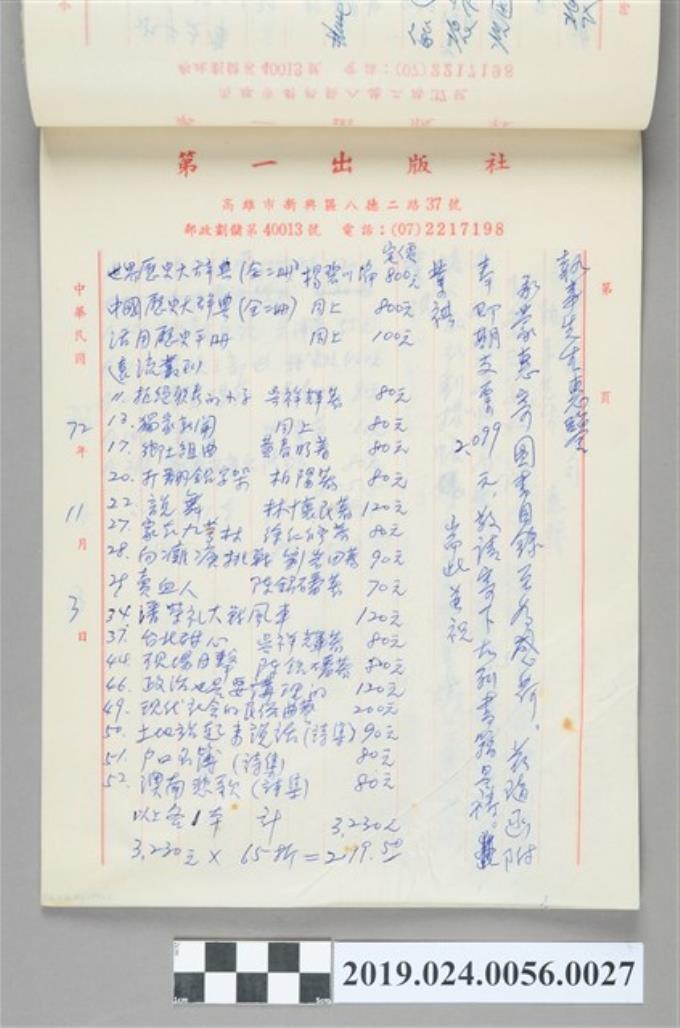 第一出版社
高雄市新興區八德二路37號
郵政劃儲第40013號 電話：(07)2217198
第 頁
執事先生惠鑒
承蒙惠寄圖書目錄至為感荷。茲隨函附
奉即期支票2,099元，敬請寄下右列書籍是禱。
耑此並祝
業祺
定價
世界歷史大辞典(全二冊) 楊碧川 800元
中國歷史大辞典(全二冊) 同上 800元
活用歷史手冊 同上 100元
遠流叢刊
11. 拒絕聯考的小子 吳祥輝著 80元
13. 獨家新聞 同上 80元
17. 鄉土組曲 黃春明著 80元
20. 打翻鉛字架 柏陽著 80元
22. 說舞 林懷民著 120元
27. 家在九芎林 徐仁修著 80元
28. 向 挑戰 90元
29 賣血人 陳銘磻著 70元
34. 唐榮礼大戰風車 120元
37. 台北甜心 吳祥輝著 80元
44. 現場目擊 陳銘磻著 80元
46. 政治也是要講理的 120元
49. 現代社会的民俗曲藝 200元
50. 土地站起來說話(詩集) 90元
51. 戶口名簿(詩集) 80元
52. 漂南悲歌(詩集) 80元
以上各1本 計 3,230元
3,230元 × 65折 = 2099.50
中華民國72年11月3日
2019.024.0056.0027